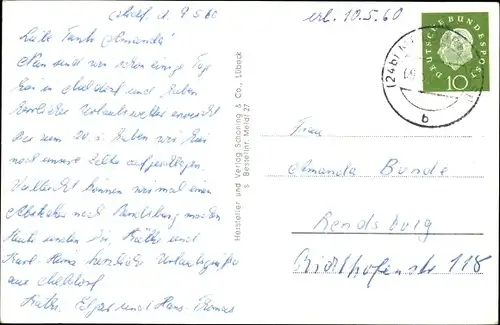 Meldorf, d. 9.5.60
erh. 10.5.60
Liebe Tante Amanda!
Nun sind wir schon einige Tage
hier in Meldorf und haben
herrliches Urlaubswetter erwischt
Bis zum 20. haben wir hier
noch unsere Zelte aufgeschlagen.
Vielleicht können wir mal einen
Abstecher nach Rendsburg machen
Heute senden Dir, Käthe und
Karl-Heinz herzliche Urlaubsgrüße
aus Meldorf
Käthe, Edgar und Hans-Thomas
Hersteller und Verlag Schöning & Co., Lübeck
Bestellnr. Meldf 27
DEUTSCHE BUNDESPOST
10
(24b)
b
Frau
Amanda Bunde
Rendsburg
Richthofenstr 118